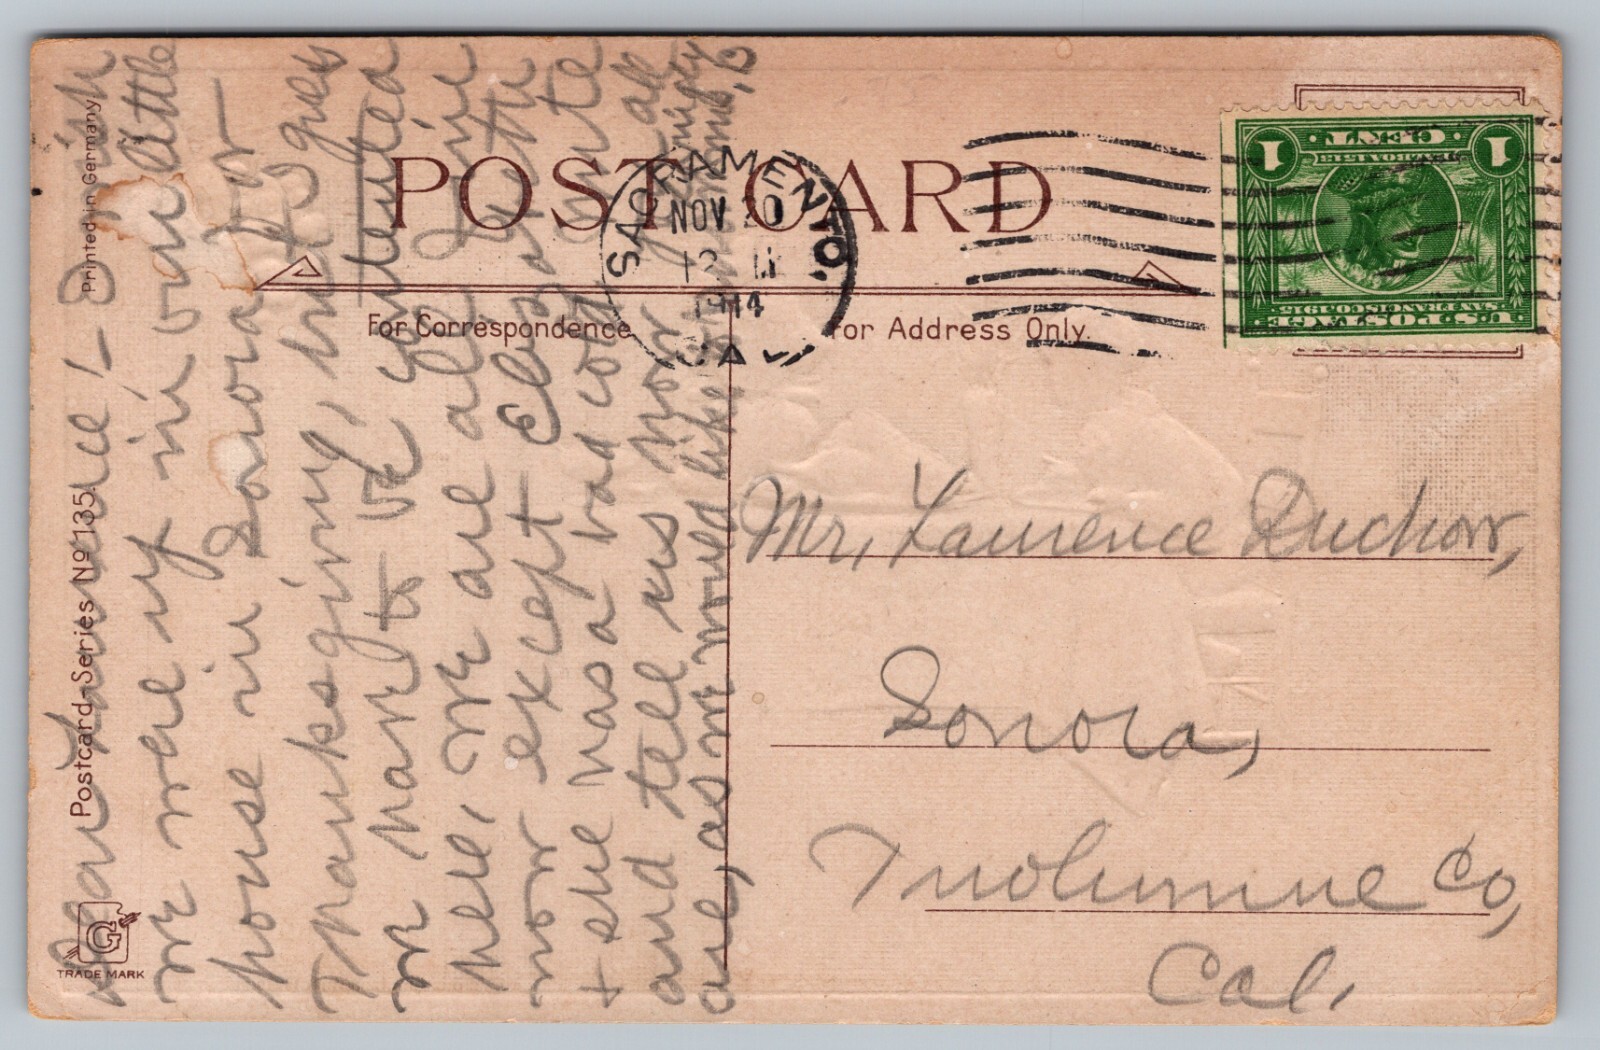 POST CARD
For Correspondence
For Address Only.
Printed in Germany
Postcard-Series No 135.
G
TRADE MARK
SACRAMENTO,
NOV 20
12
1914
CAL
U.S. POSTAGE
SAN FRANCISCO 1915
1 CENT 1
Dear Laurence! - I wish
we were up in our little
house in Sonora for
Thanksgiving, but I gues
we have to be contented
here, we are all fine
now except Elizabeth
+ she has a bad cold, write
and tell us how you all
are, as we would like to
Mr, Laurence Duchow,
Sonora,
Tuolumne Co,
Cal,